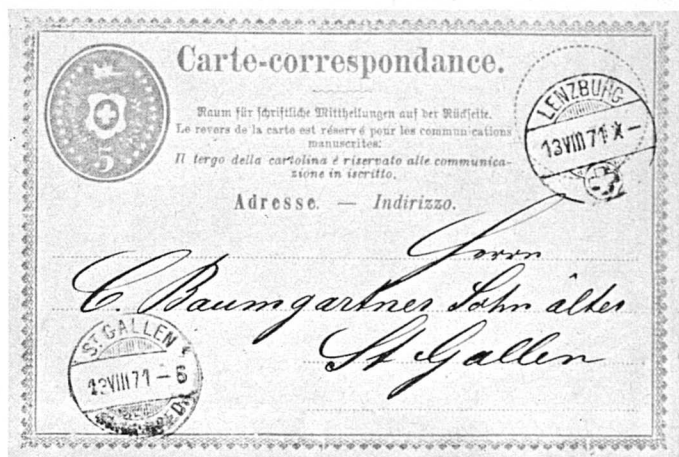 Carte-correspondance.
5
Raum für schriftliche Mittheilungen auf der Rückseite.
Le revers de la carte est réservé pour les communications
manuscrites.
Il tergo della cartolina é riservato alle communica-
zione in iscritto.
Adresse. — Indirizzo.
LENZBURG
13 VIII 71 X –
Herrn
C. Baumgartner Sohn älter
St Gallen
ST GALLEN
13 VIII 71 – 6